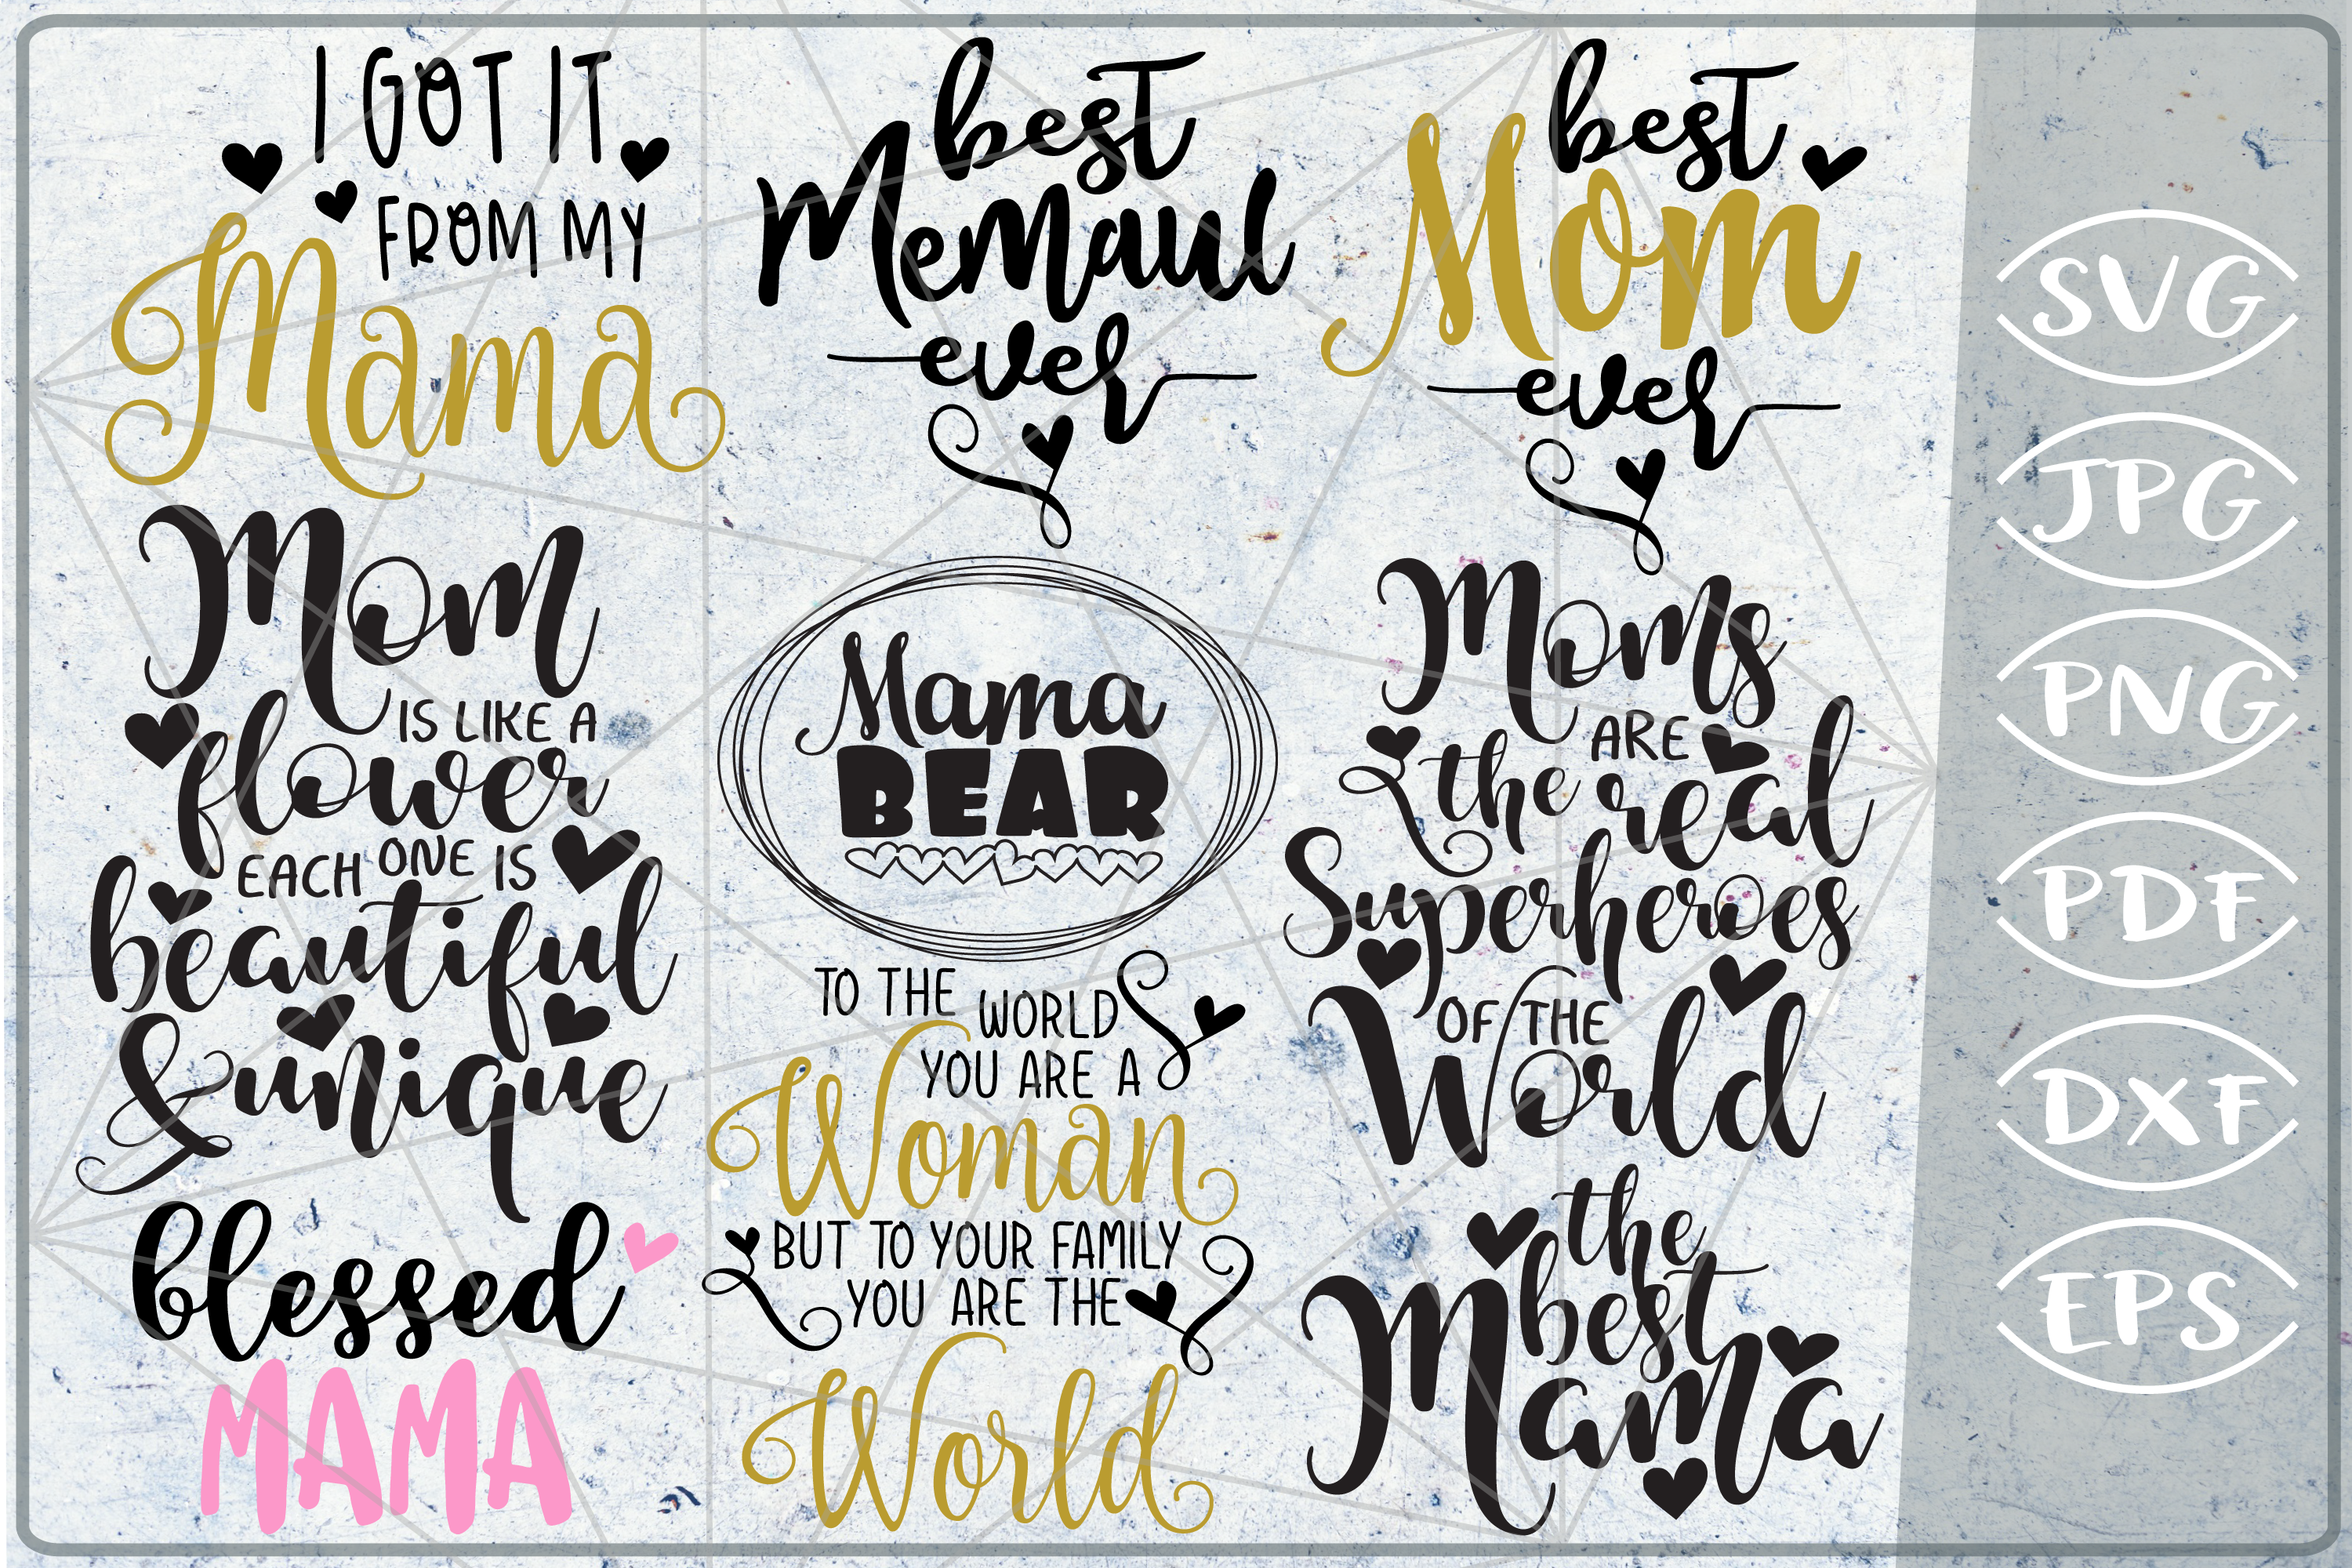 I GOT IT
FROM MY
Mama
best
Memaul
ever
best
Mom
ever
Mom
IS LIKE A
flower
EACH ONE IS
beautiful
& unique
Mama
BEAR
Moms
ARE
the real
Superheroes
OF THE
World
blessed
MAMA
TO THE WORLD
YOU ARE A
Woman
BUT TO YOUR FAMILY
YOU ARE THE
World
the
best
Mama
SVG
JPG
PNG
PDF
DXF
EPS